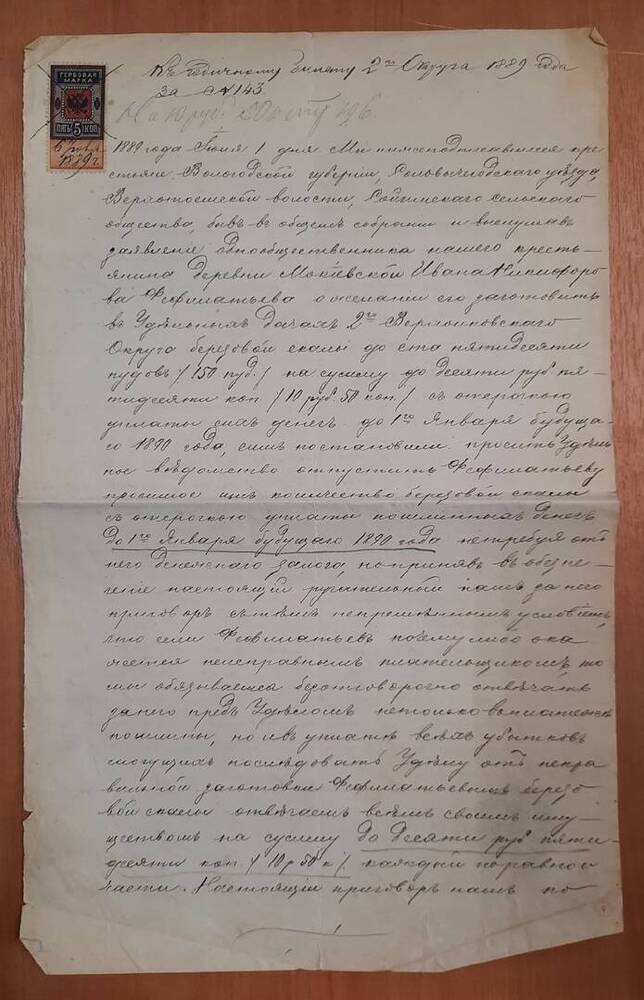 Къ годичному билету 2го Округа 1889 года
за № 143
ГЕРБОВАЯ
МАРКА
ПЯТЬ 5 КОП.
1889 г.
На 10 руб.
1889 года Іюня 1 дня Мы нижеподписавшіеся кре-
стьяне Вологодской губерніи, Сольвычегодскаго уѣзда,
Верхотоемской волости, сельскаго
общества, бывъ въ общемъ собраніи и выслушавъ
заявленіе однообщественника нашего кресть-
янина деревни Мокіевской Ивана Никифоро-
ва Феофилатьева о желаніи его заготовить
въ Удѣльныхъ Дачахъ 2го
Округа березовой скалы до ста пятидесяти
пудовъ /150 пуд./ на сумму до десяти руб. пя-
тидесяти коп. /10 руб. 50 коп./ съ отсрочкою
уплаты сихъ денегъ до 1го Января будуща-
го 1890 года, симъ постановили: просить Удѣль-
ное вѣдомство отпустить Феофилатьеву
просимое имъ количество березовой скалы
съ отсрочкою уплаты пошлинныхъ денегъ
до 1го Января будущаго 1890 года не требуя отъ
него денежнаго залога, но принявъ въ обезпе-
ченіе настоящій ручательный нашъ за него
приговоръ съ тѣмъ непремѣннымъ условіемъ,
что если Феофилатьевъ почему либо ока
жется неисправнымъ плательщикомъ, то
мы обязываемся безотговорочно отвѣчать
за него предъ Удѣломъ не только въ платежѣ
пошлины, но и въ уплатѣ всѣхъ убытковъ
могущихъ послѣдовать Удѣлу отъ непра
вильной заготовки Феофилатьевымъ березо
вой скалы отвѣчаемъ всѣмъ своимъ иму-
ществомъ на сумму до десяти руб. пяти-
десяти коп. /10 р 50 к/. каждый по равной
части. Настоящій приговоръ нашъ по